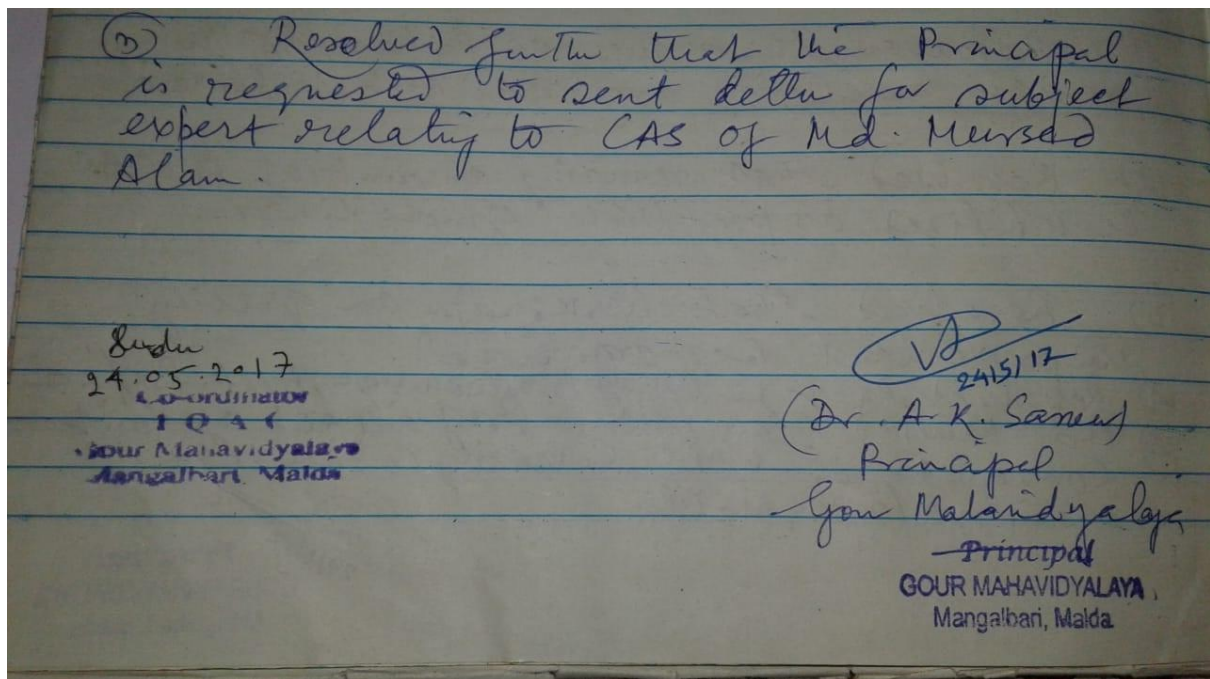 (3) Resolved further that the Principal
is requested to sent letter for subject
expert relating to CAS of Md. Mursad
Alam.
24.05.2017
Co-ordinator
I Q A C
Gour Mahavidyalaya
Mangalbari, Malda
24/5/17
(Dr. A. K. Sarkar)
Principal
Gour Mahavidyalaya
Principal
GOUR MAHAVIDYALAYA
Mangalbari, Malda